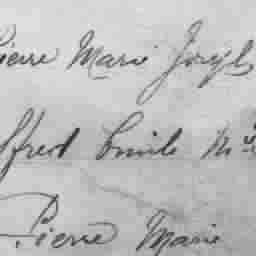 Pierre Marie Joseph
Alfred Emile M
Pierre Marie